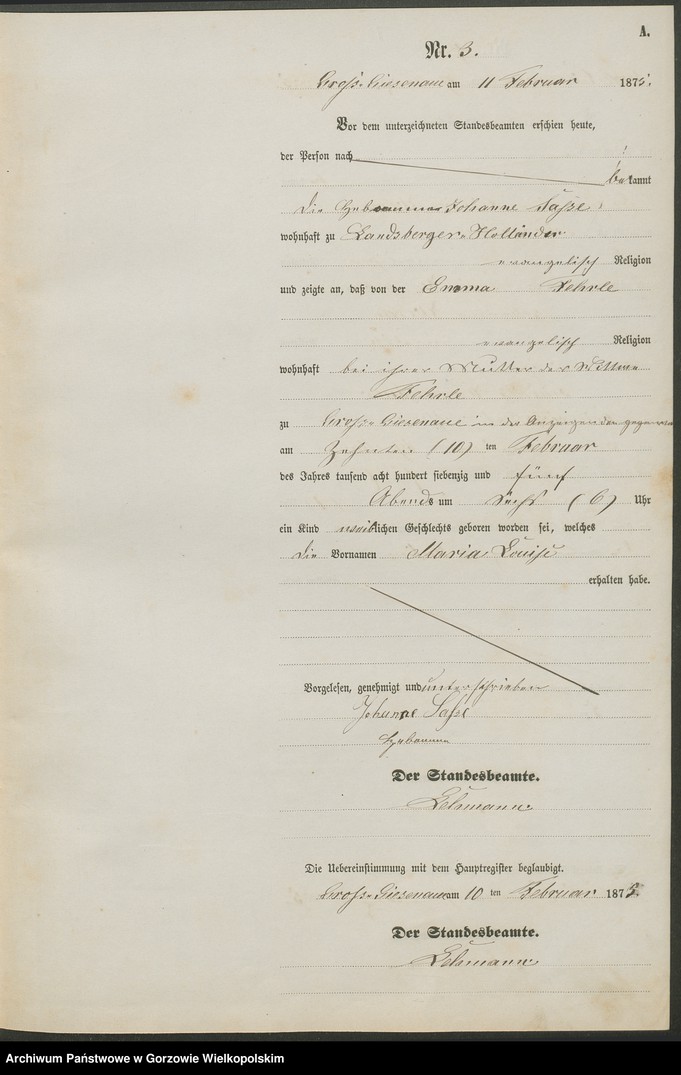 A.
Nr. 3.
Groß-Giesenaue am 11 Februar 1875.
Vor dem unterzeichneten Standesbeamten erschien heute,
der Person nach
bekannt
die Hebamme Johanne Saſse
wohnhaft zu Landsberger-Holländer
evangelisch Religion
und zeigte an, daß von der Emma Fehrle
evangelisch Religion
wohnhaft bei ihrer Mutter der Wittwe
Fehrle
zu Groß-Giesenaue in der Anzeigenden Gegenwart
am Zehnten (10) ten Februar
des Jahres tausend acht hundert siebenzig und fünf
Abends um Sechs (6) Uhr
ein Kind weiblichen Geschlechts geboren worden sei, welches
die Vornamen Maria Louise
erhalten habe.
Vorgelesen, genehmigt und unterschrieben
Johanne Saſse
Hebamme
Der Standesbeamte.
Lehmann
Die Uebereinstimmung mit dem Hauptregister beglaubigt.
Groß-Giesenaue am 10 ten Februar 1875.
Der Standesbeamte.
Lehmann
Archiwum Państwowe w Gorzowie Wielkopolskim